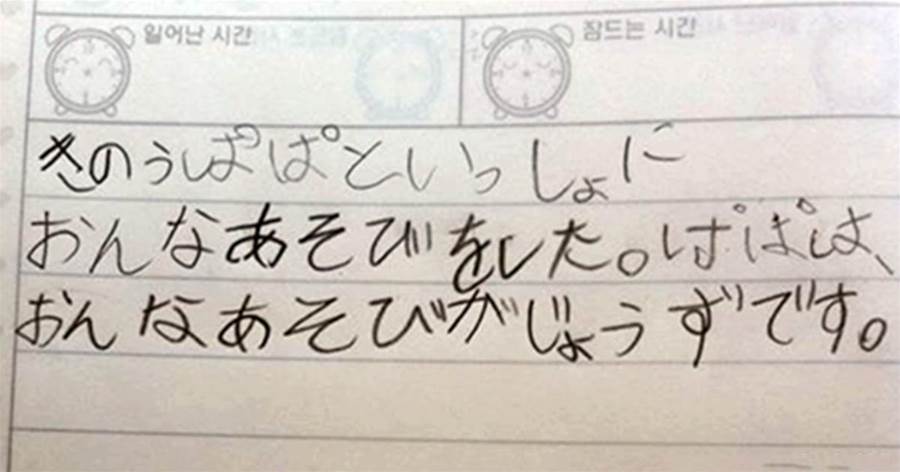 일어난 시간 잠드는 시간
きのうぱぱといっしょに
おんなあそびをした。ぱぱは、
おんなあそびがじょうずです。